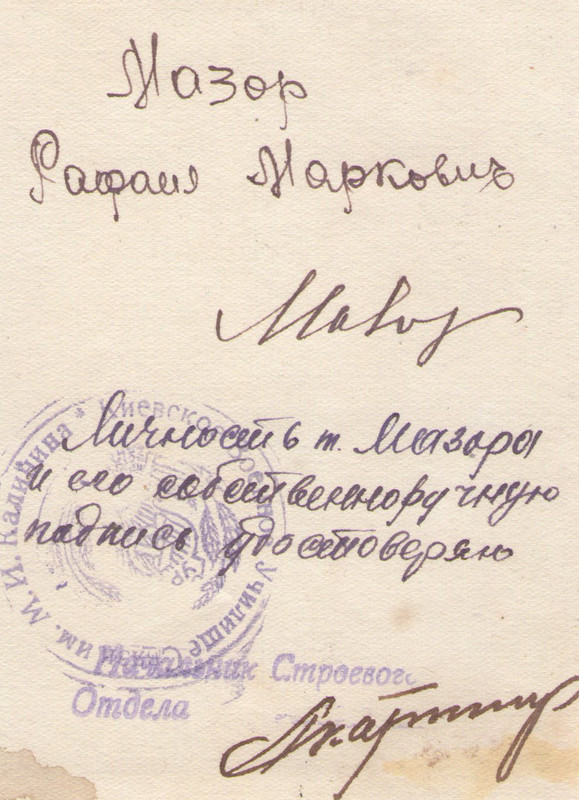 Мазор
Рафаил Маркович
Мазор
Личность т. Мазора
и его собственноручную
подпись удостоверяю
Киевское Училище Связи им. М. И. Калинина
Начальник Строевого
Отдела